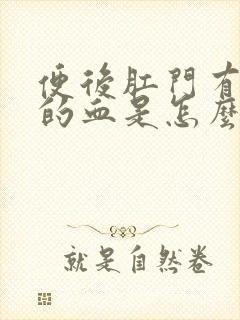 便後肛門有
的血是怎麼
就是自然卷